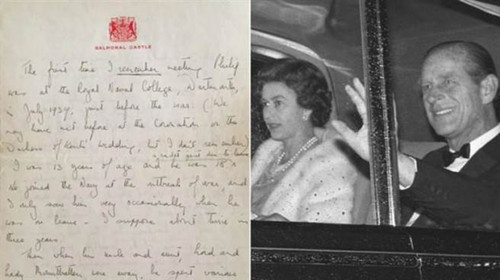 BALMORAL CASTLE
The first time I remember meeting Philip
was at the Royal Naval College, Dartmouth,
in July 1939, just before the war. (We
may have met before at the Coronation or the
Duchess of Kent's wedding, but I don't remember).
I was 13 years of age and he was 18
He joined the Navy at the outbreak of war and
I only saw him very occasionally when he
was on leave - I suppose about twice in
three years.
Then when his uncle and aunt, Lord and
Lady Mountbatten were away, he spent various